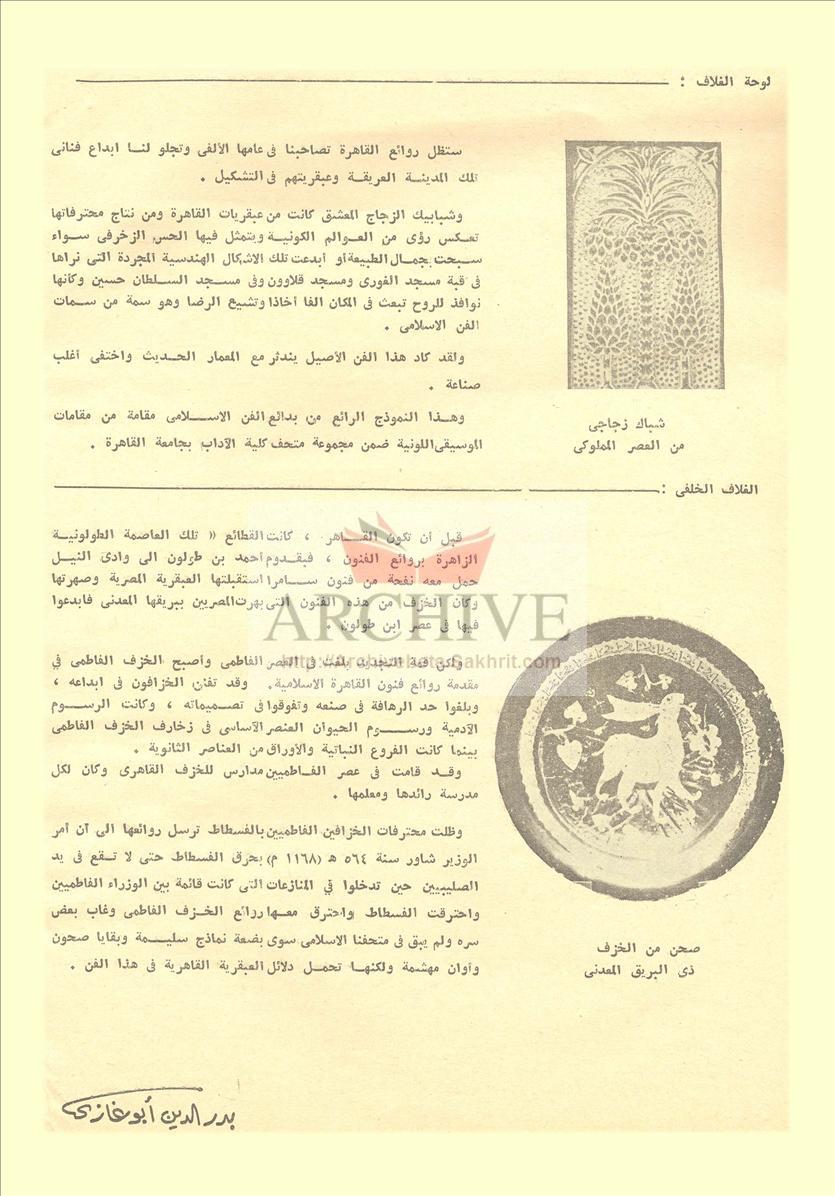 لوحة الغلاف :
ستظل روائع القاهرة تصاحبنا فى عامها الألفى وتجلو لنا ابداع فنانى
تلك المدينة العريقة وعبقريتهم فى التشكيل .
وشبابيك الزجاج المعشق كانت من عبقريات القاهرة ومن نتاج محترفاتها
تعكس رؤى من العوالم الكونية ويتمثل فيها الحس الزخرفى سواء
سبحت بجمال الطبيعة أو أبدعت تلك الاشكال الهندسية المجردة التى نراها
فى قبة مسجد الغورى ومسجد قلاوون وفى مسجد السلطان حسين وكأنها
نوافذ للروح تبعث فى المكان الفا أخاذا وتشيع الرضا وهو سمة من سمات
الفن الاسلامى .
ولقد كاد هذا الفن الأصيل يندثر مع المعمار الحديث واختفى أغلب
صناعة .
وهذا النموذج الرائع من بدائع الفن الاسلامى مقامة من مقامات
الموسيقى اللونية ضمن مجموعة متحف كلية الآداب بجامعة القاهرة .
شباك زجاجى
من العصر المملوكى
الغلاف الخلفى :
قبل أن تكون القاهر ، كانت القطائع « تلك العاصمة الطولونية
الزاهرة بروائع الفنون ، فبقدوم أحمد بن طولون الى وادى النيل
حمل معه نفحة من فنون سامرا استقبلتها العبقرية المصرية وصهرتها
وكان الخزف من هذه الفنون التى بهرت المصريين ببريقها المعدنى فابدعوا
فيها فى عصر ابن طولون .
ولكن قمة التجديد بلغت فى العصر الفاطمى وأصبح الخزف الفاطمى في
مقدمة روائع فنون القاهرة الاسلامية. وقد تفنن الخزافون فى ابداعه ،
وبلغوا حد الرهافة فى صنعه وتفوقوا فى تصميماته ، وكانت الرسوم
الآدمية ورسوم الحيوان العنصر الأساسى فى زخارف الخزف الفاطمى
بينما كانت الفروع النباتية والأوراق من العناصر الثانوية .
وقد قامت فى عصر الفاطميين مدارس للخزف القاهرى وكان لكل
مدرسة رائدها ومعلمها .
وظلت محترفات الخزافين الفاطميين بالفسطاط ترسل روائعها الى أن أمر
الوزير شاور سنة ٥٦٤ ه (١١٦٨ م) بحرق الفسطاط حتى لا تقع فى يد
الصليبيين حين تدخلوا في المنازعات التى كانت قائمة بين الوزراء الفاطميين
واحترقت الفسطاط واحترق معها روائع الخزف الفاطمى وغاب بعض
سره ولم يبق فى متحفنا الاسلامى سوى بضعة نماذج سليمة وبقايا صحون
وأوان مهشمة ولكنها تحمل دلائل العبقرية القاهرية فى هذا الفن .
صحن من الخزف
ذى البريق المعدنى
ARCHIVE
http://Archivebeta.Sakhrit.com
بدر الدين أبو غازى